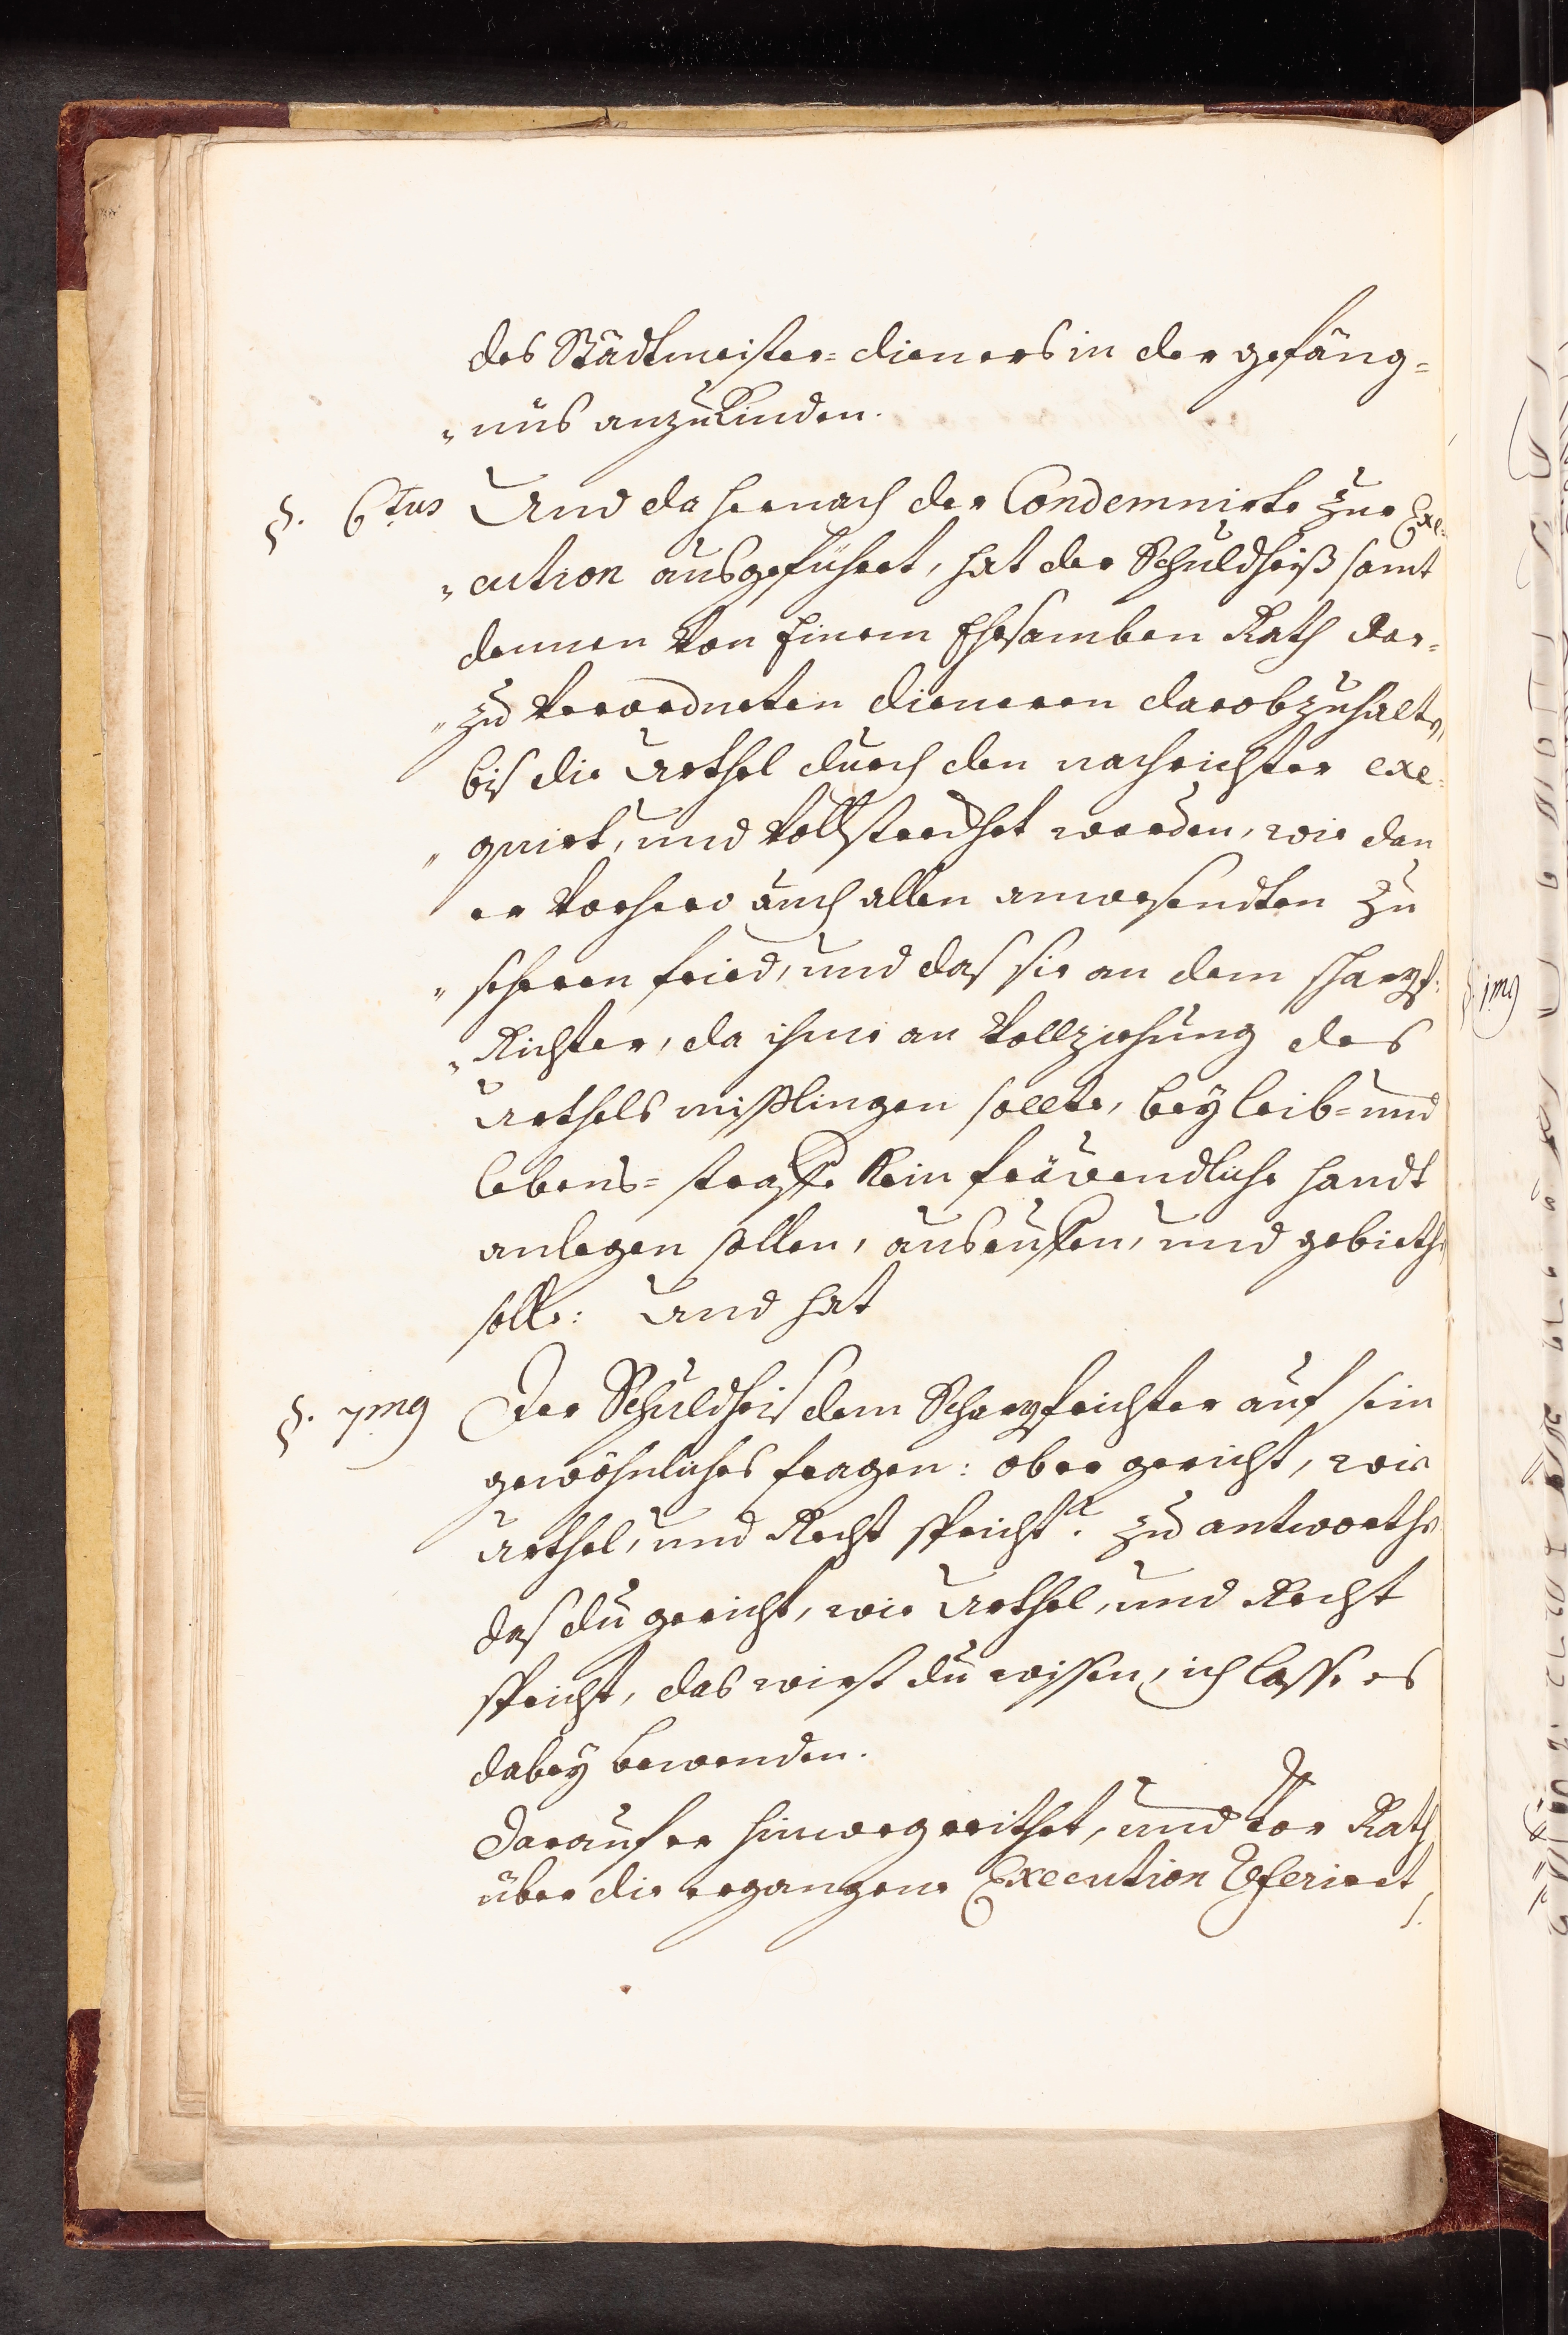 des Städtmeister-dieners in der gefäng-
„nüs anzukünden.
§. 6tus Und da hernach der Condemnirte zur Exe-
„cution ausgeführt, hat der Schuldheiß samt
dennen von Einem Ehrsamben Rath dar-
„zu verordneten dieneren darobzuhalten,
biß die Urthel durch den nachrichter exe-
„quirt, und vollstreckhet worden, wie dan
er vorhero auch allen anwesendten zu
„scheren fried, und daß sie an dem scharpf-
„Richter, da ihme an vollziehung des
Urthels mißlingen sollte, bey leib- und
lebens-straffe kein fräwendliche handt
anlegen sollen, ausruffen, und gebiethen
solle: Und hat
§. 7mus Der Schuldheiß dem Scharpfrichter auf sein
gewöhnliches fragen: ob er gericht, wie
Urthel, und Recht spricht? zu antworthen
daß du gericht, wie Urthel, und Recht
spricht, das wirst du wissen, ich lasse es
dabey bewenden.
Darauf er hinweg reithet, und vor Rath
über die ergangene Execution referiert,